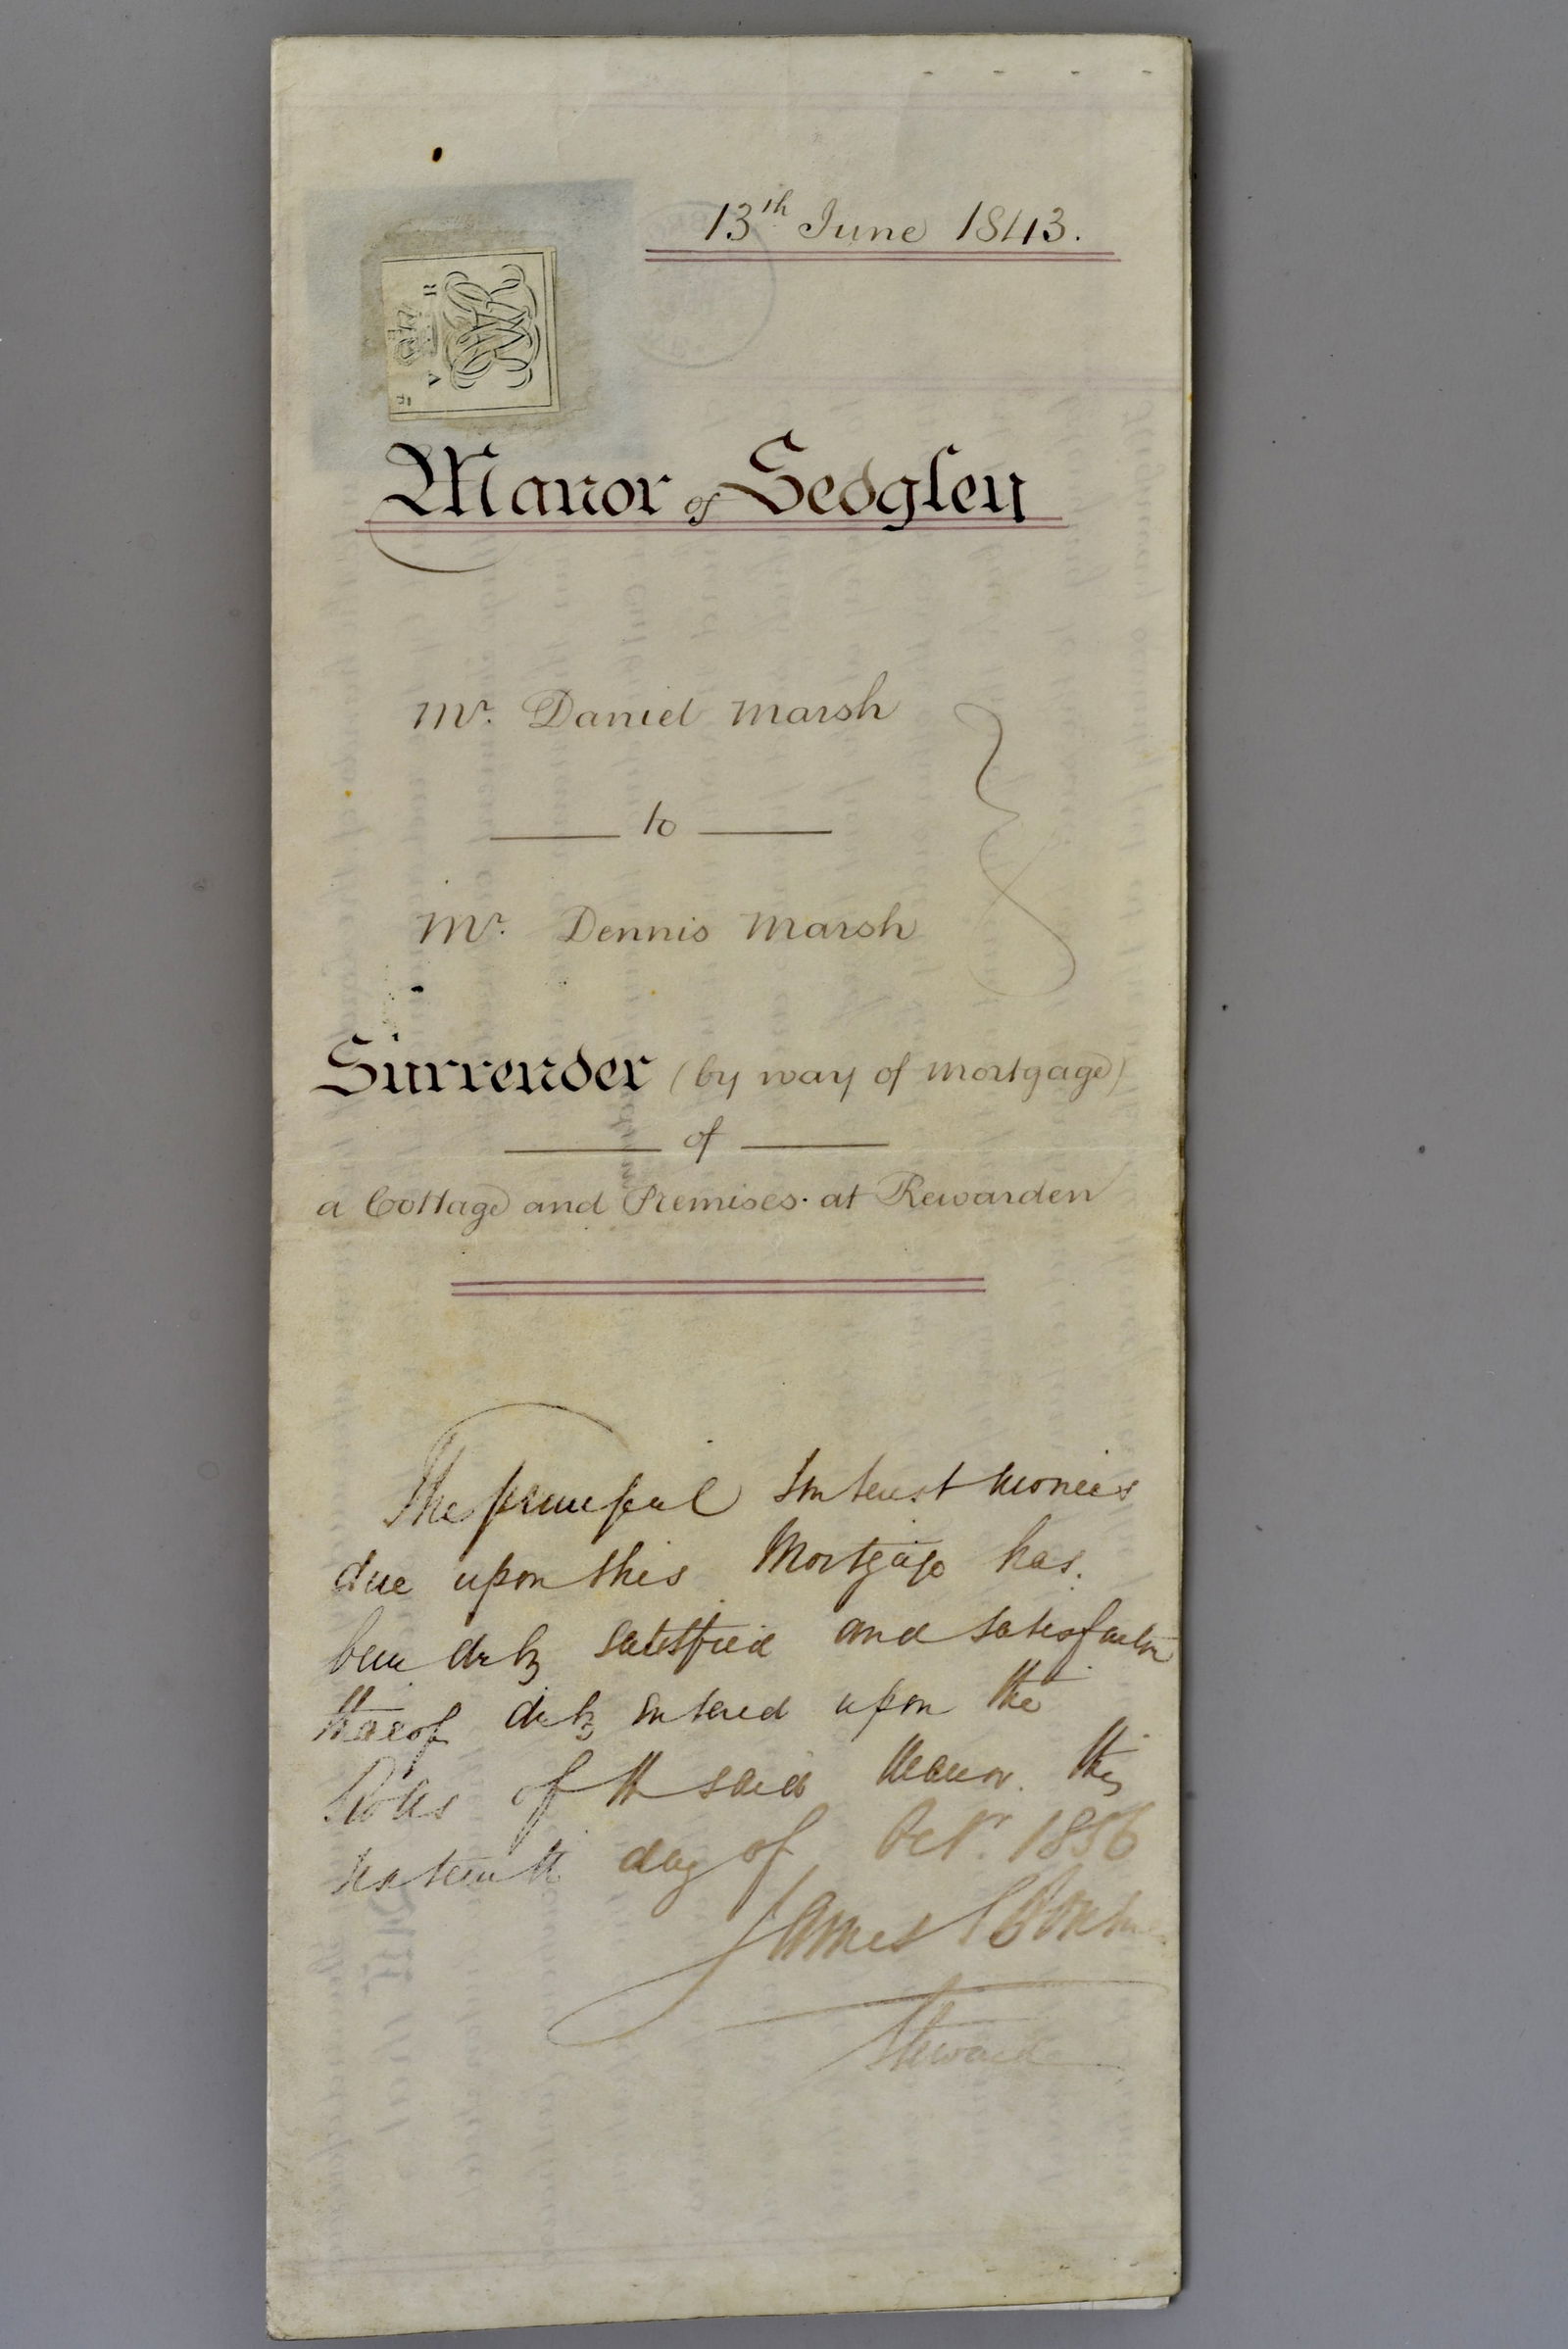 13th June 1843.
V R
Manor of Sedgley
Mr. Daniel Marsh
to
Mr. Dennis Marsh
Surrender (by way of Mortgage)
of
a Cottage and Premises at Rewarden
The principal Interest Monies
due upon this Mortgage has
been duly satisfied and satisfaction
thereof duly entered upon the
Rolls of the said Manor this
day of Octr. 1856
James
Steward